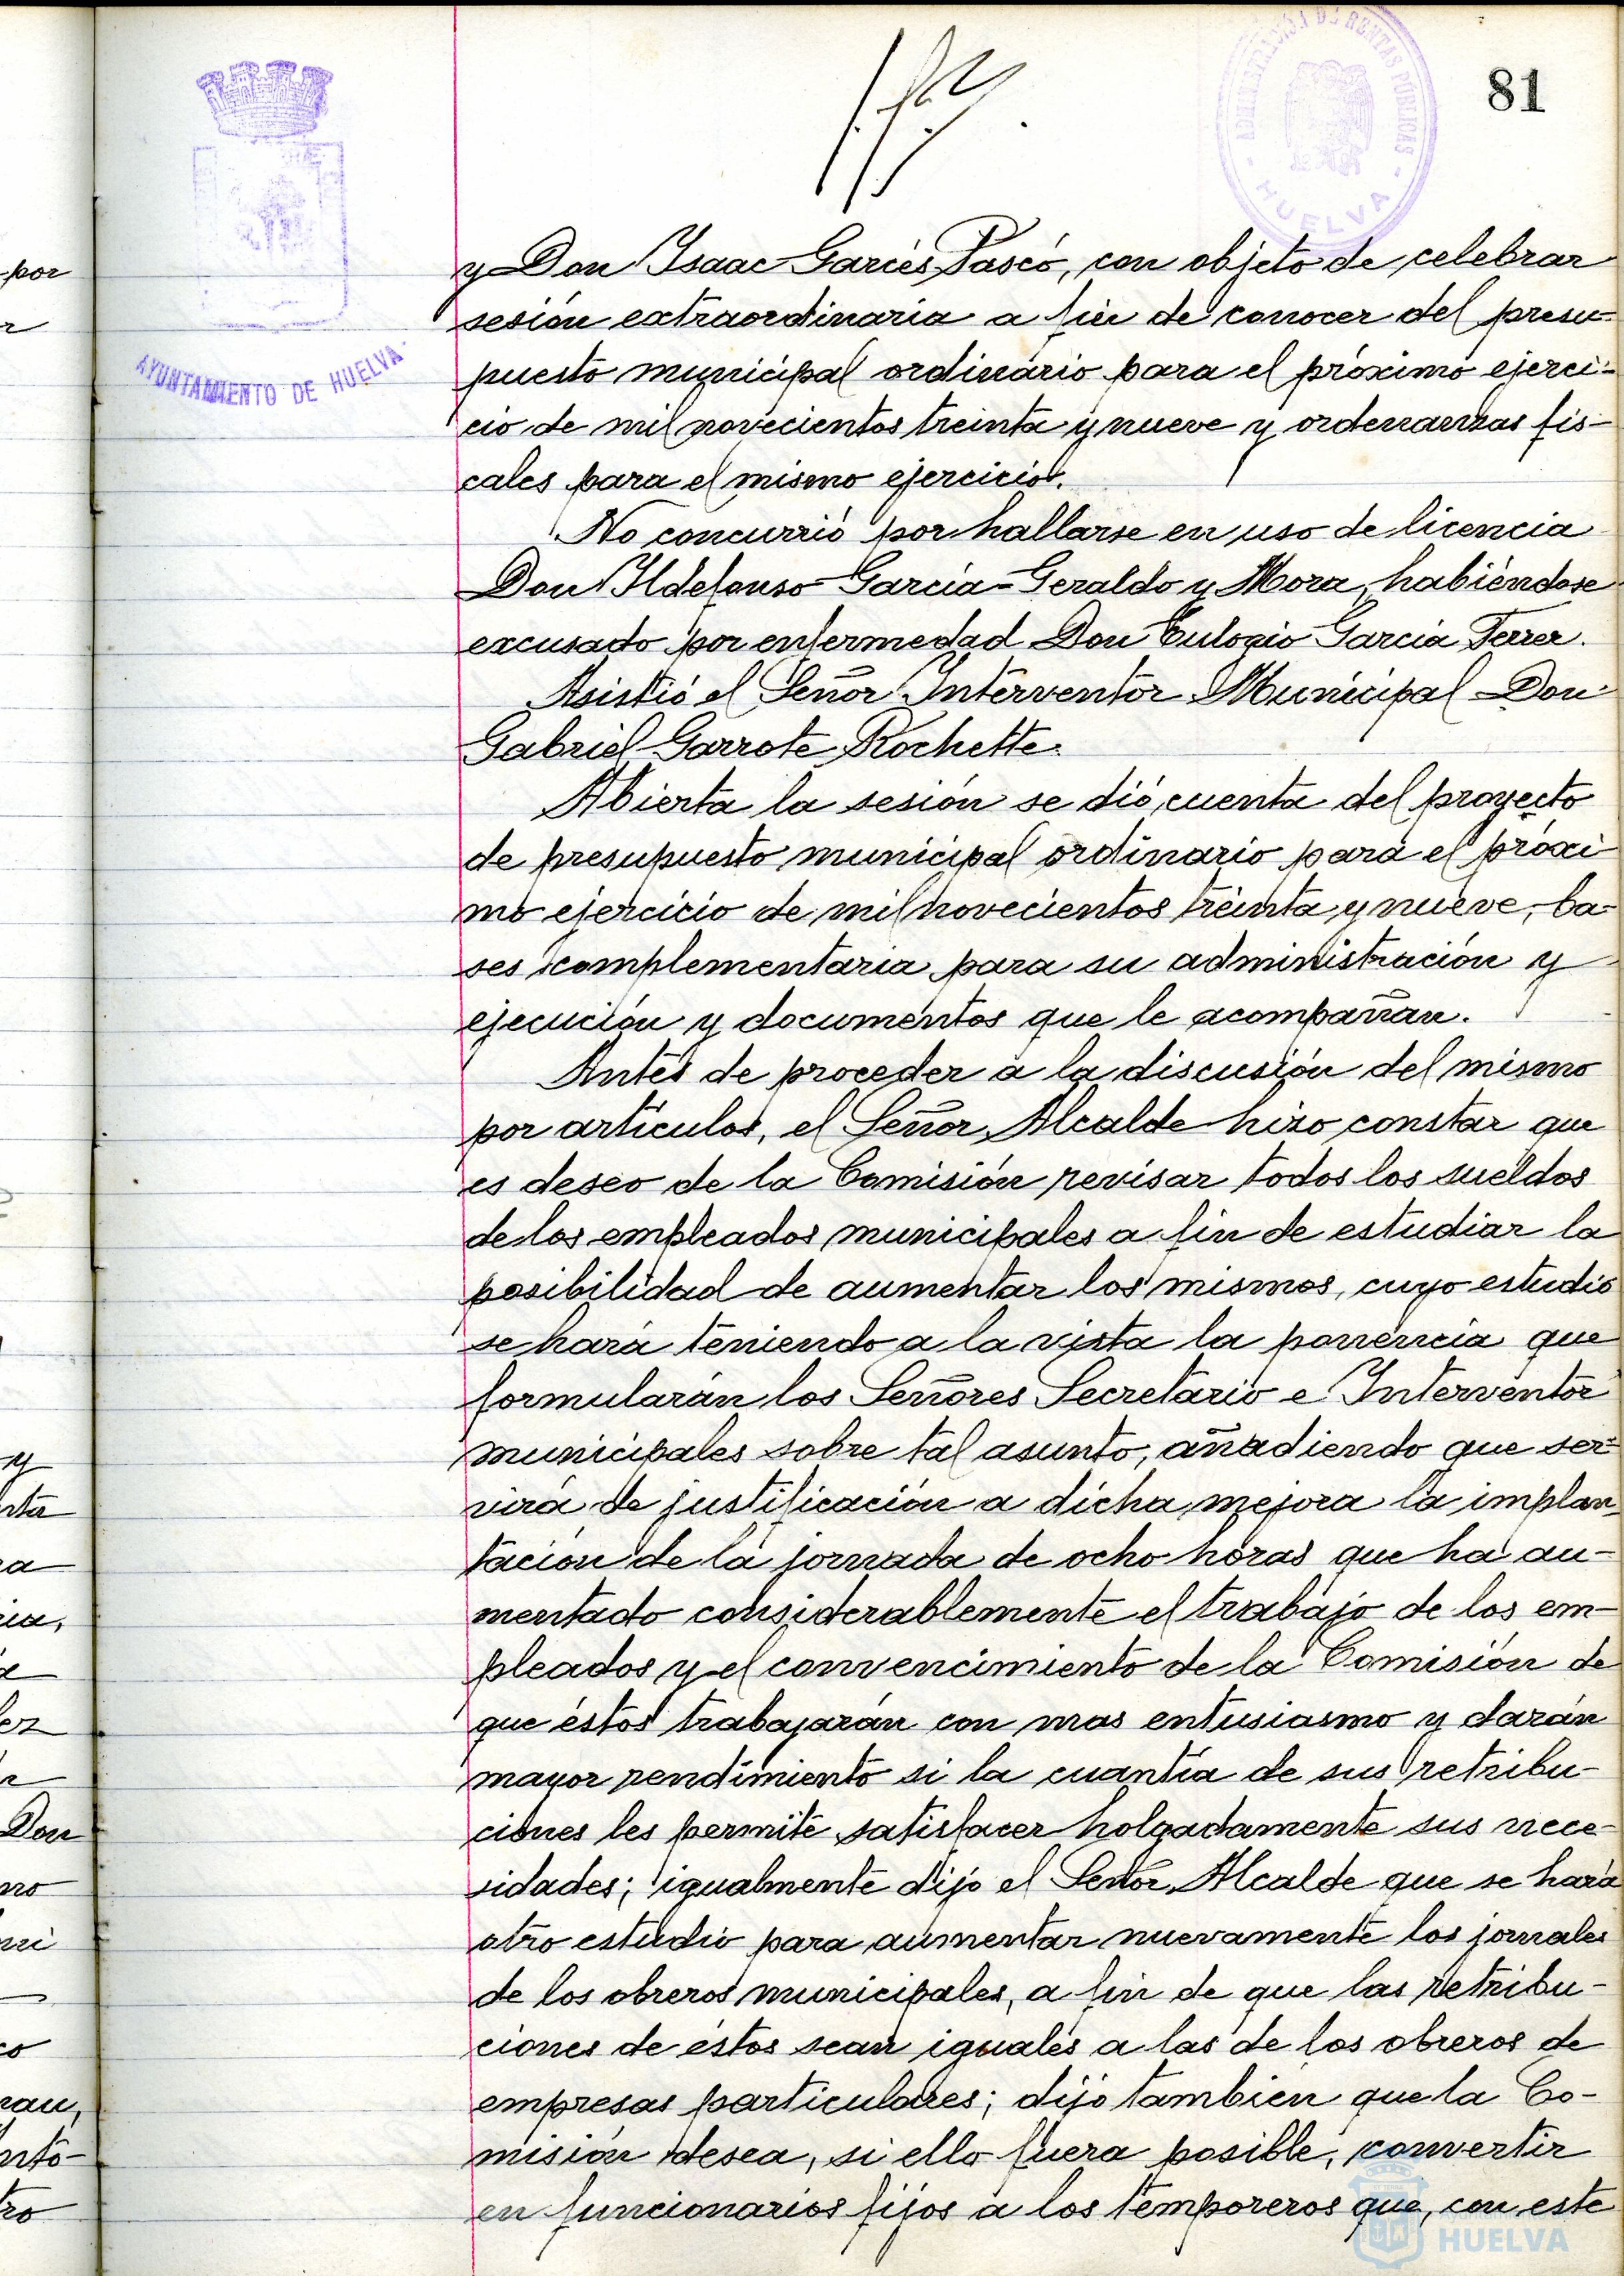 81
ADMINISTRACIÓN DE RENTAS PÚBLICAS
- HUELVA -
AYUNTAMIENTO DE HUELVA
y Don Isaac Garcés Pascó, con objeto de celebrar
sesión extraordinaria a fin de conocer del presu-
puesto municipal ordinario para el próximo ejerci-
cio de mil novecientos treinta y nueve y ordenanzas fis-
cales para el mismo ejercicio.
No concurrió por hallarse en uso de licencia
Don Ildefonso García-Geraldo y Mora, habiéndose
excusado por enfermedad Don Eulogio García Ferrer.
Asistió el Señor Interventor Municipal Don
Gabriel Garrote Rochette.
Abierta la sesión se dió cuenta del proyecto
de presupuesto municipal ordinario para el próxi-
mo ejercicio de mil novecientos treinta y nueve, ba-
ses complementaria para su administración y
ejecución y documentos que le acompañan.
Antes de proceder a la discusión del mismo
por artículos, el Señor Alcalde hizo constar que
es deseo de la Comisión revisar todos los sueldos
de los empleados municipales a fin de estudiar la
posibilidad de aumentar los mismos, cuyo estudio
se hará teniendo a la vista la ponencia que
formularán los Señores Secretario e Interventor
municipales sobre tal asunto, añadiendo que ser-
virá de justificación a dicha mejora la implan-
tación de la jornada de ocho horas que ha au-
mentado considerablemente el trabajo de los em-
pleados y el convencimiento de la Comisión de
que éstos trabajarán con mas entusiasmo y darán
mayor rendimiento si la cuantía de sus retribu-
ciones les permite satisfacer holgadamente sus nece-
sidades; igualmente dijo el Señor Alcalde que se hará
otro estudio para aumentar nuevamente los jornales
de los obreros municipales, a fin de que las retribu-
ciones de éstos sean iguales a las de los obreros de
empresas particulares; dijo tambien que la Co-
misión desea, si ello fuera posible, convertir
en funcionarios fijos a los temporeros que, con este
HUELVA
por
Don